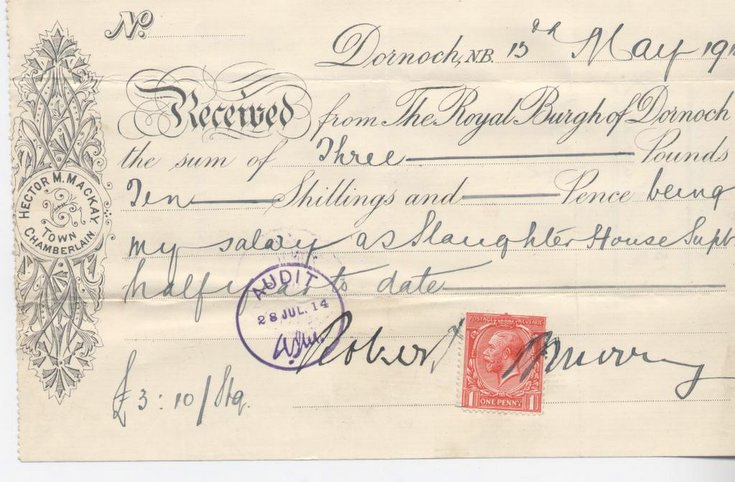 No.
Dornoch, N.B. 13th May 191
Received from The Royal Burgh of Dornoch
the sum of Three Pounds
Ten Shillings and Pence being
my salary as Slaughter House Supt
half year to date
HECTOR M. MACKAY
TOWN
CHAMBERLAIN
AUDIT
28 JUL. 14
Robert Murray
POSTAGE REVENUE
1 ONE PENNY 1
£3:10/Stg.